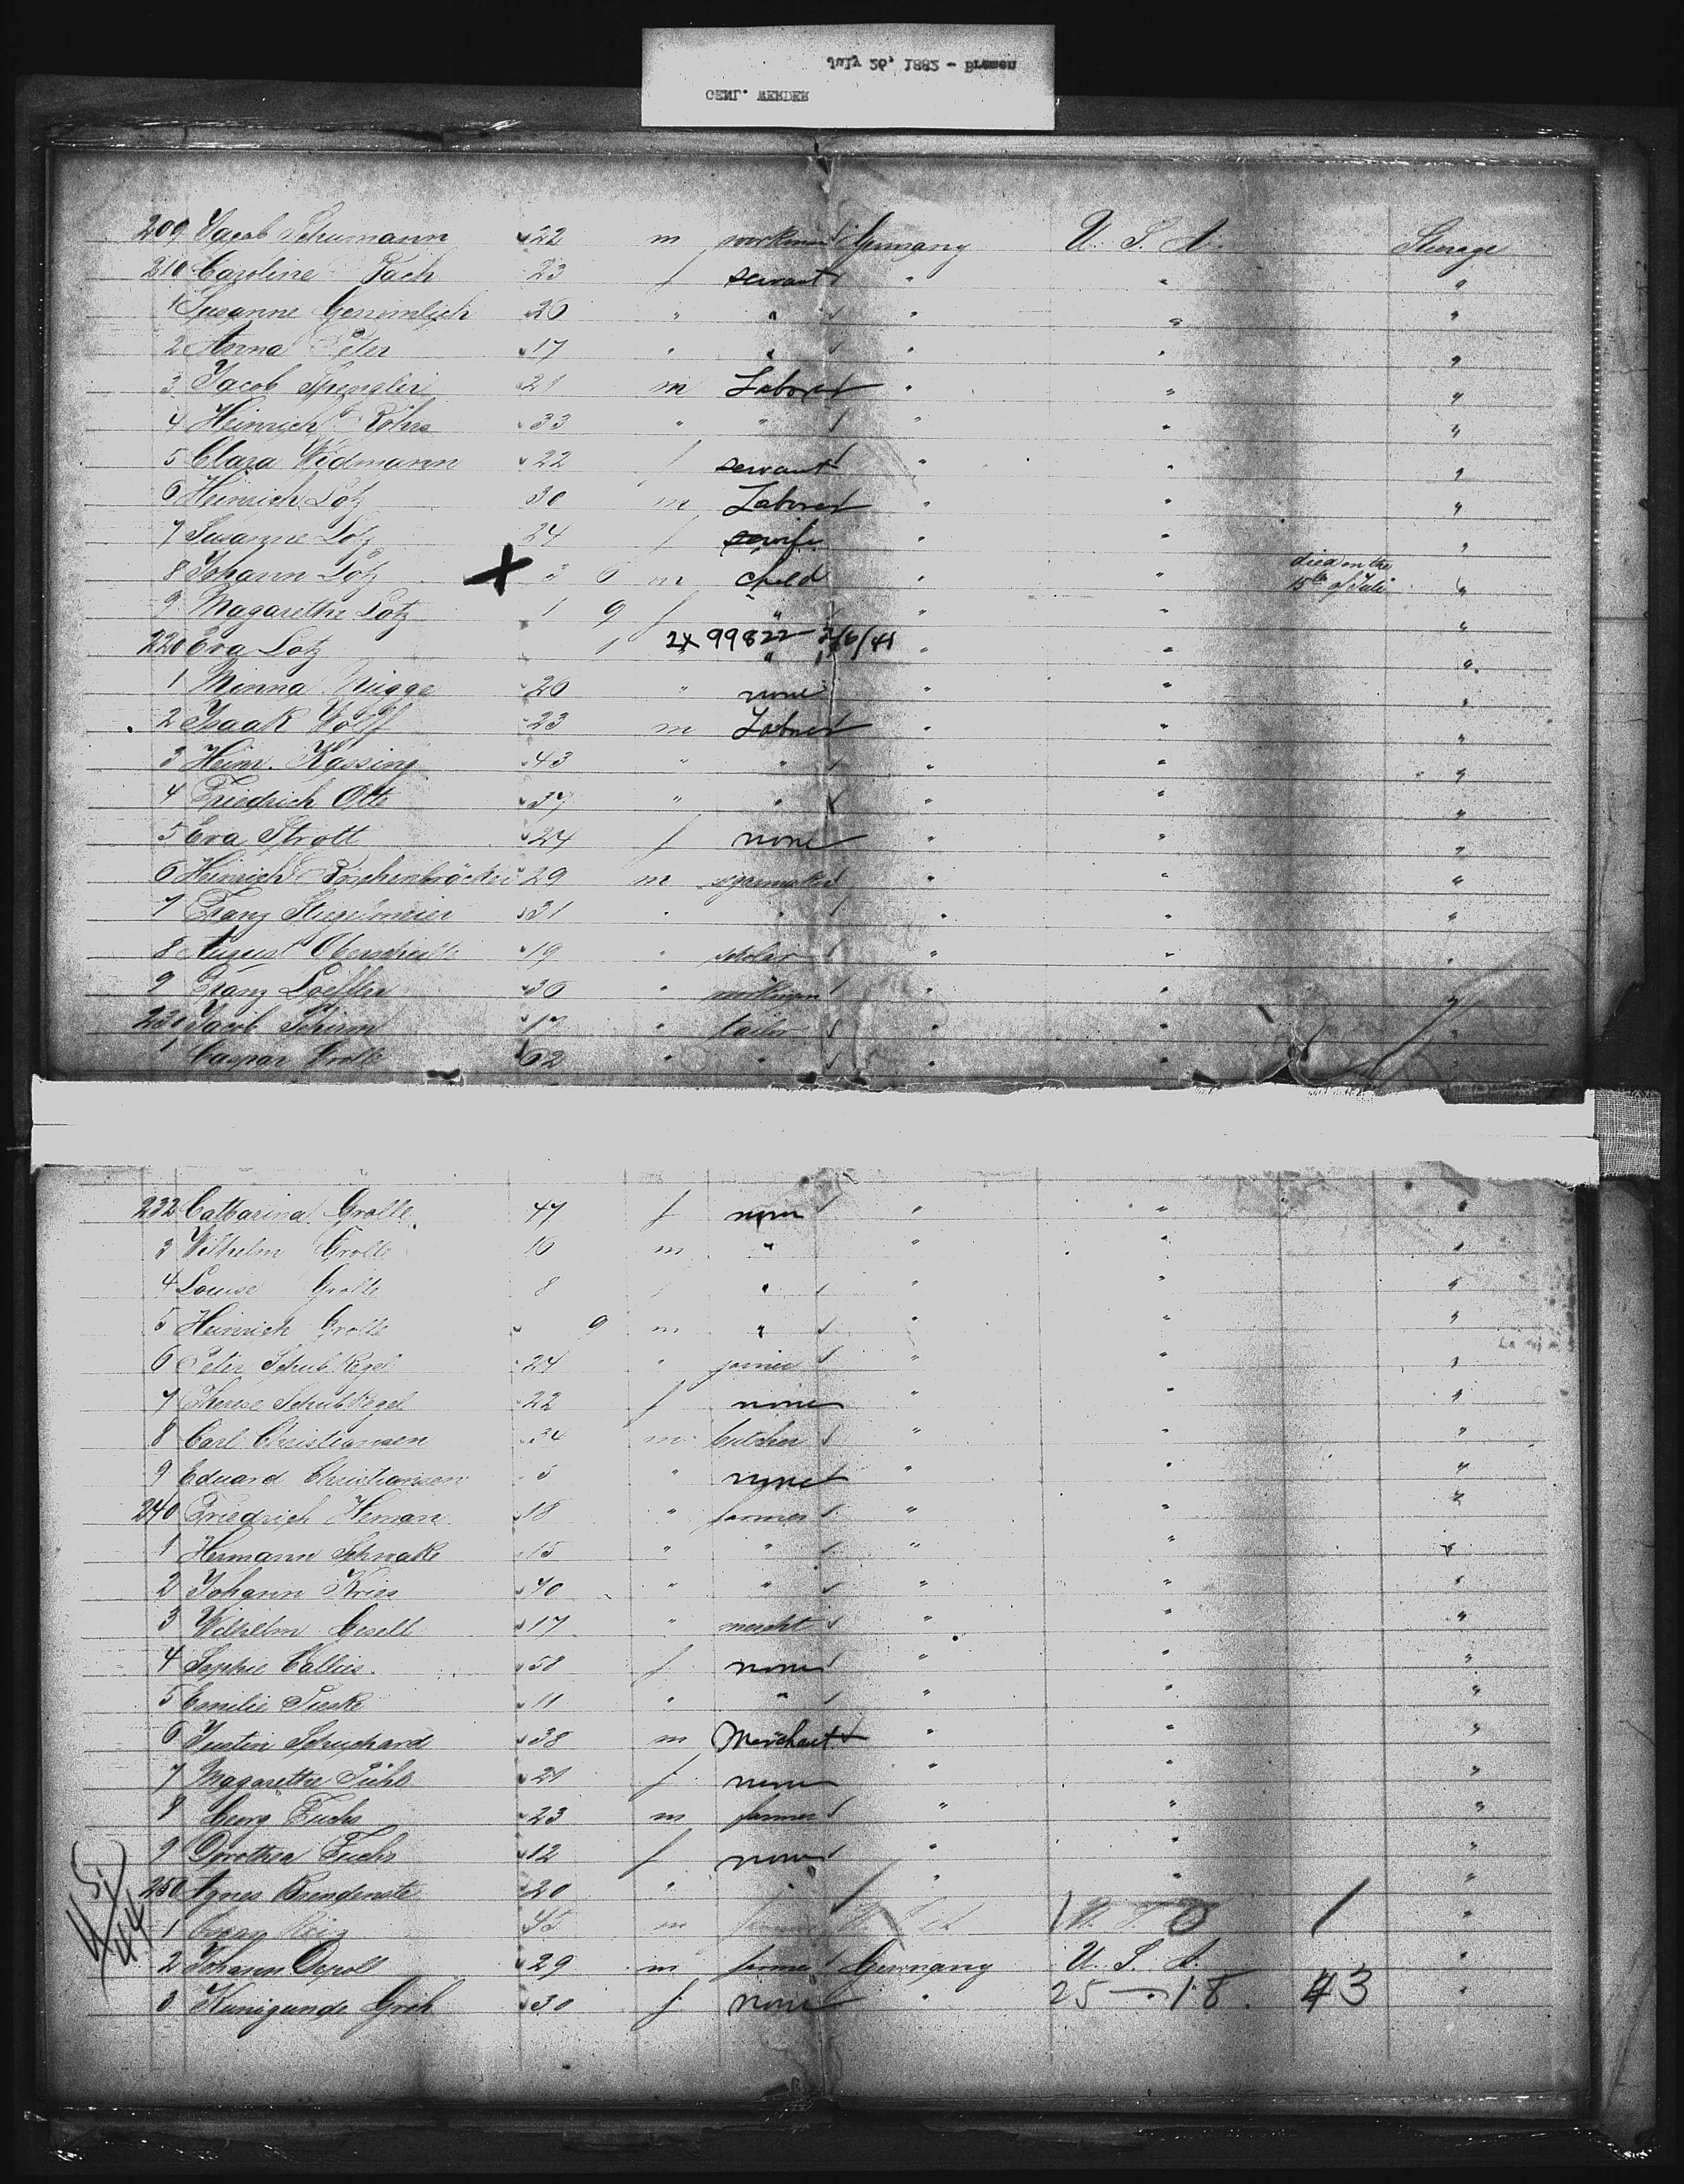 July 26, 1882 - Bremen
GENL. WERDER
209 Jacob Schumann 22 m workman Germany U. S. A. Steerage
210 Caroline Bach 23 f servant " " "
1 Susanne 26 " " " " "
2 Anna Peter 17 " " " " "
3 Jacob Spengler 21 m Laborer " " "
4 Heinrich Röhrs 33 " " " " "
5 Clara Widmann 22 f servant " " "
6 Heinrich Lotz 30 m Laborer " " "
7 Susanne Lotz 24 f wife " " "
died on the
8 Johann Lotz X 3 6 m child " " 15th of Juli "
9 Magarethe Lotz 1 9 f " " " "
2X 99822 2/6/41
220 Eva Lotz 1 " " " "
1 Minna 26 " none " " "
2 Isaak Wolff 23 m Laborer " " "
3 Heinr. Kassing 43 " " " " "
4 Friedrich Otte 37 " " " " "
5 Eva Strott 24 f none " " "
6 Heinrich 29 m sigarmaker " " "
7 Franz Stegelmeier 31 " " " " "
8 August 19 " scholar " " "
9 Franz Loeffler 36 " workman " " "
230 Jacob Schirm " tailor " " "
1 Caspar Grolle 62 " " " " "
232 Catharina Grolle 47 f none " " "
3 Wilhelm Grolle 16 m " " " "
4 Louise Grolle 8 f " " " "
5 Heinrich Grolle 9 m " " " "
6 Peter Schubkegel 24 " joiner " " "
7 Therese Schubkegel 22 f none " " "
8 Carl Christiansen 34 m butcher " " "
9 Eduard Christiansen 5 " none " " "
240 Friedrich Heman 18 " farmer " " "
1 Hermann Schwake 15 " " " " "
2 Johann Kries 40 " " " " "
3 Wilhelm Gesell 17 " mercht " " "
4 Sophie Callies 58 f none " " "
5 Emilie Pieske 11 " " " " "
6 Justin Schuchard 38 m Merchant " " "
7 Magarethe 21 f none " " "
8 Georg Fuchs 23 m farmer " " "
9 Dorothea Fuchs 12 f none " " "
250 Agnes 20 " " " " "
1 45 m 1 "
2 Johann 29 m farmer Germany U. S. A. "
3 Kunigunde Groh 30 f none " 25 - 18. 43 "
45
44